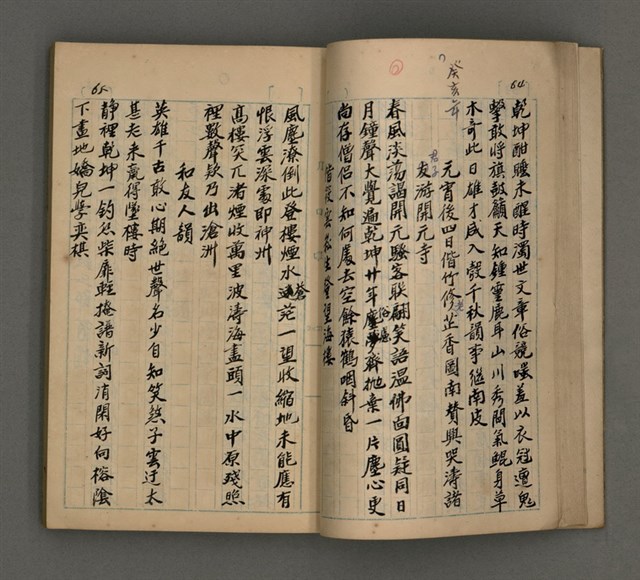 64
乾坤酣睡未醒時濁世文章俗競嗤蓋以衣冠遭鬼
擊敢將旗鼓籲天知鍾靈鹿耳山川秀間氣鯤身草
木奇此日雄才咸入彀千秋韻事繼南皮
癸亥年
元宵後四日偕竹修芷香圖南贊興哭濤諸
君子
友游開元寺
春風淡蕩謁開元騷客联翩笑語溫佛面圓疑同日
月鐘聲大覺遍乾坤廿年塵夢齊抛棄一片塵心更
俗慮
尚存僧侶不知何處去空餘猿鶴咽斜昏
偕啟雲登望海樓
風塵潦倒此登樓煙水蒼茫一望收縮地未能應有
恨浮雲深處即神州
高樓突兀渚煙收萬里波濤海盡頭一水中原殘照
裡數聲欸乃出滄洲
和友人韻
英雄千古耿心期絕世聲名少自知笑煞子雲迂太
甚老來贏得墜樓時
靜裡乾坤一釣絲柴扉輕掩譜新詞消閑好向榕陰
下畫地嬌兒學奕棋
65